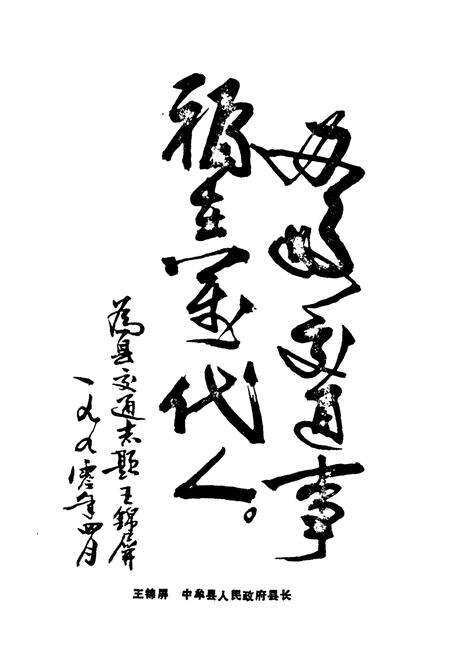 办好交通事
福在万代人。
为县交通志题 王锦屏
一九九零年四月
王锦屏 中牟县人民政府县长